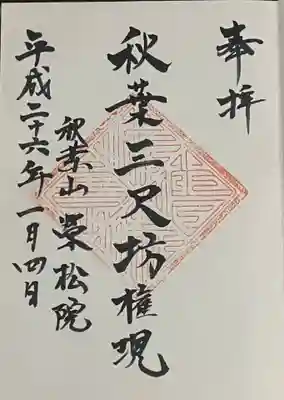 奉拝
秋葉三尺坊権現
秋葉山 榮松院
平成二十六年一月四日